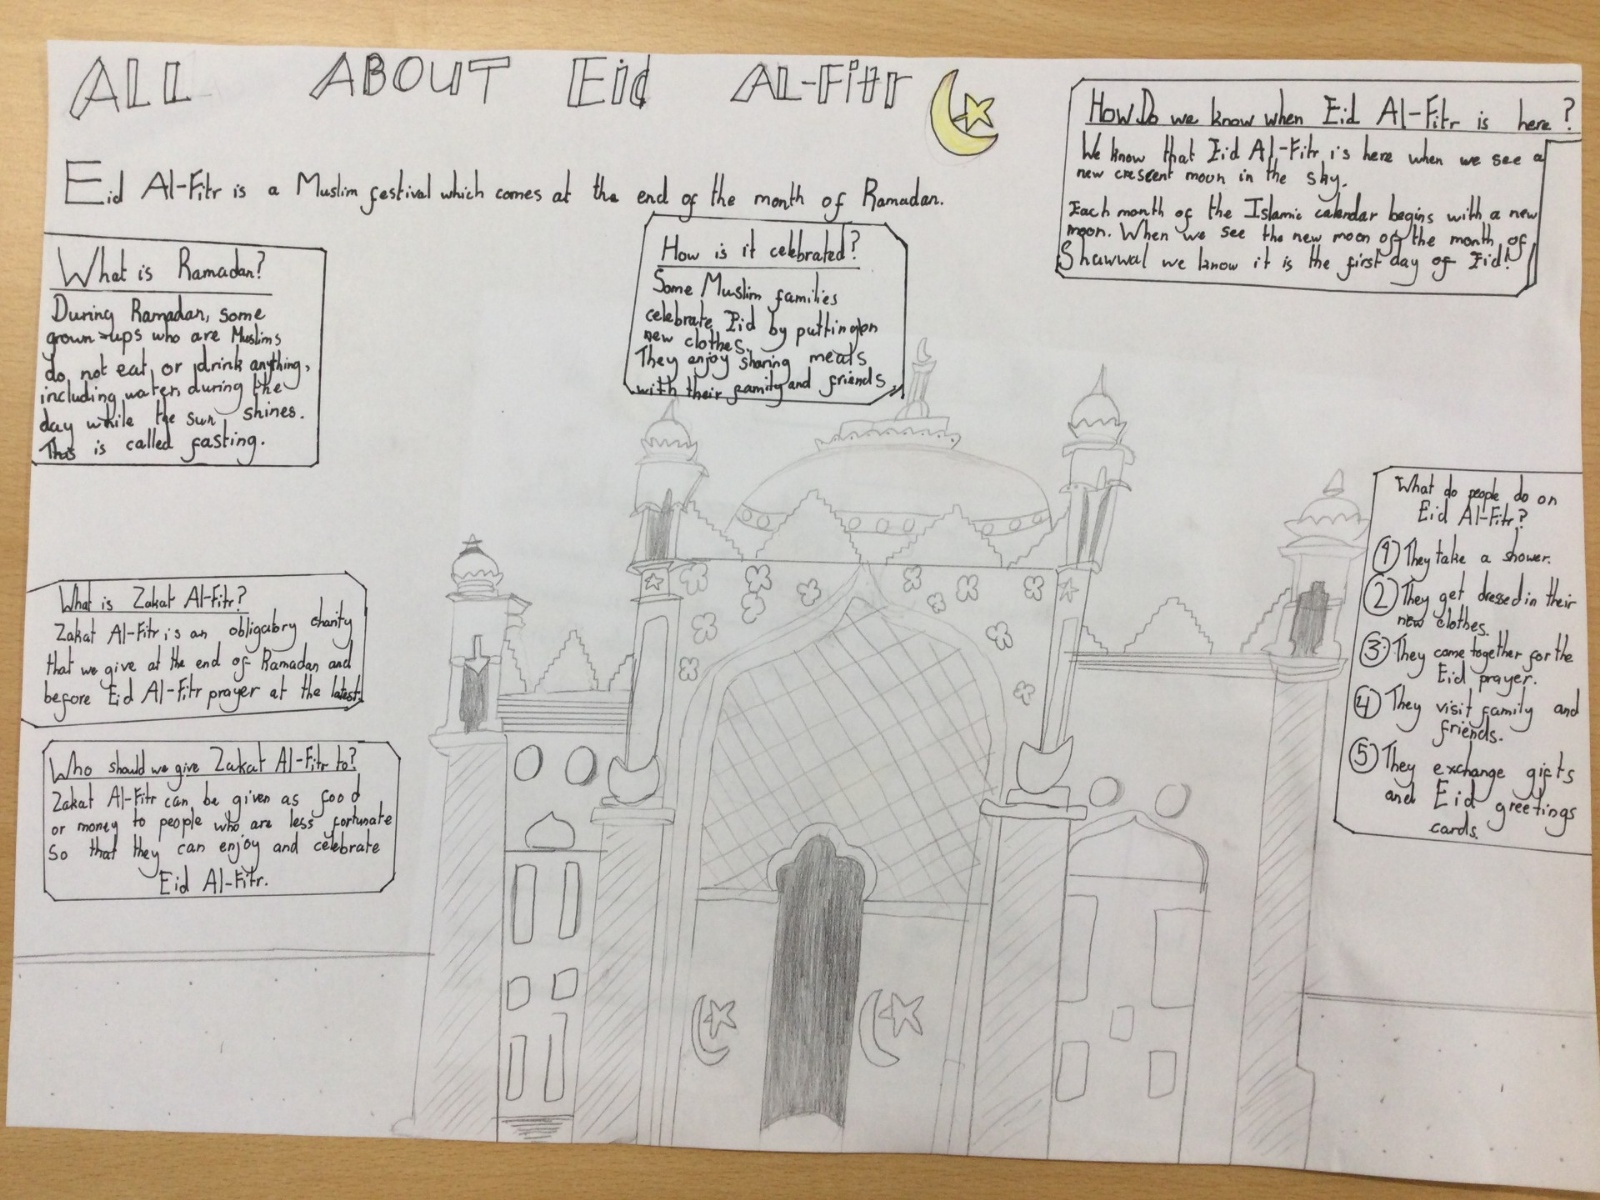 ALL ABOUT Eid AL-Fitr
Eid Al-Fitr is a Muslim festival which comes at the end of the month of Ramadan.
How Do we know when Eid Al-Fitr is here?
We know that Eid Al-Fitr is here when we see a
new crescent moon in the sky.
Each month of the Islamic calendar begins with a new
moon. When we see the new moon of the month of
Shawwal we know it is the first day of Eid!
What is Ramadan?
During Ramadan, some
grown-ups who are Muslims
do not eat, or drink anything,
including water, during the
day while the sun shines.
This is called fasting.
How is it celebrated?
Some Muslim families
celebrate Eid by putting on
new clothes.
They enjoy sharing meals
with their family and friends.
What is Zakat Al-Fitr?
Zakat Al-Fitr is an obligatory charity
that we give at the end of Ramadan and
before Eid Al-Fitr prayer at the latest.
Who should we give Zakat Al-Fitr to?
Zakat Al-Fitr can be given as food
or money to people who are less fortunate
So that they can enjoy and celebrate
Eid Al-Fitr.
What do people do on
Eid Al-Fitr?
1 They take a shower.
2 They get dressed in their
new clothes.
3 They come together for the
Eid prayer.
4 They visit family and
friends.
5 They exchange gifts
and Eid greetings
cards.